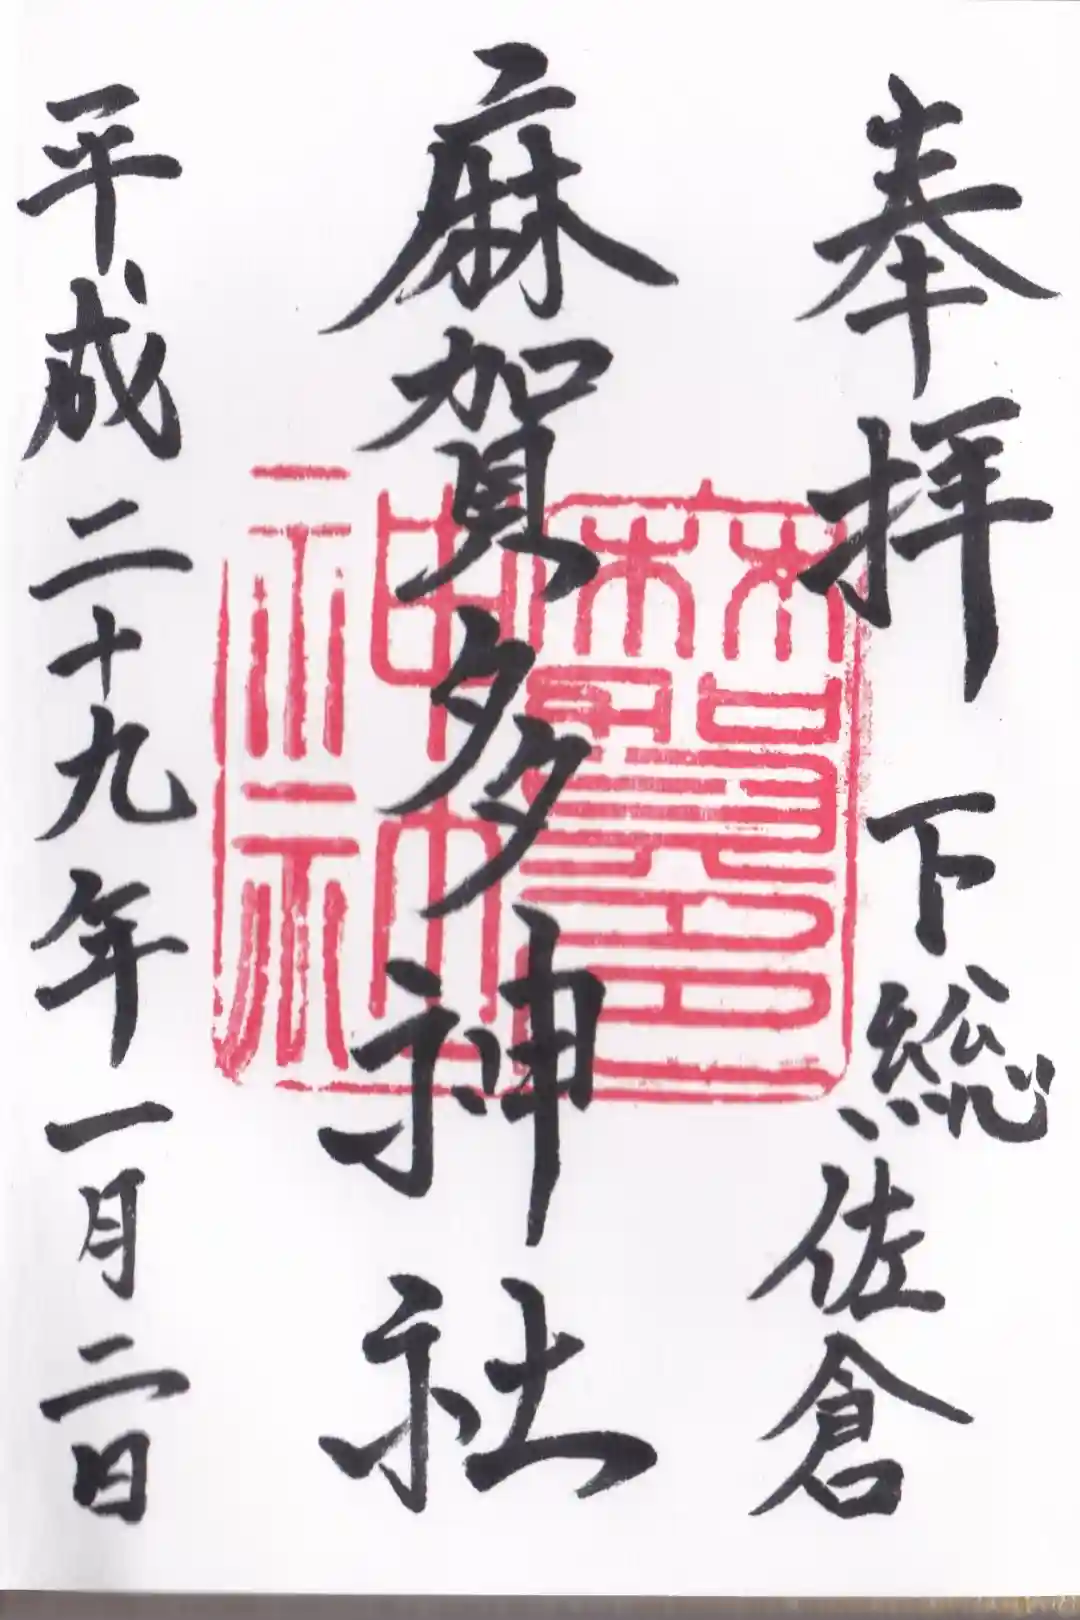 奉拝 下総佐倉
麻賀多神社
麻賀多神社
平成二十九年一月二日